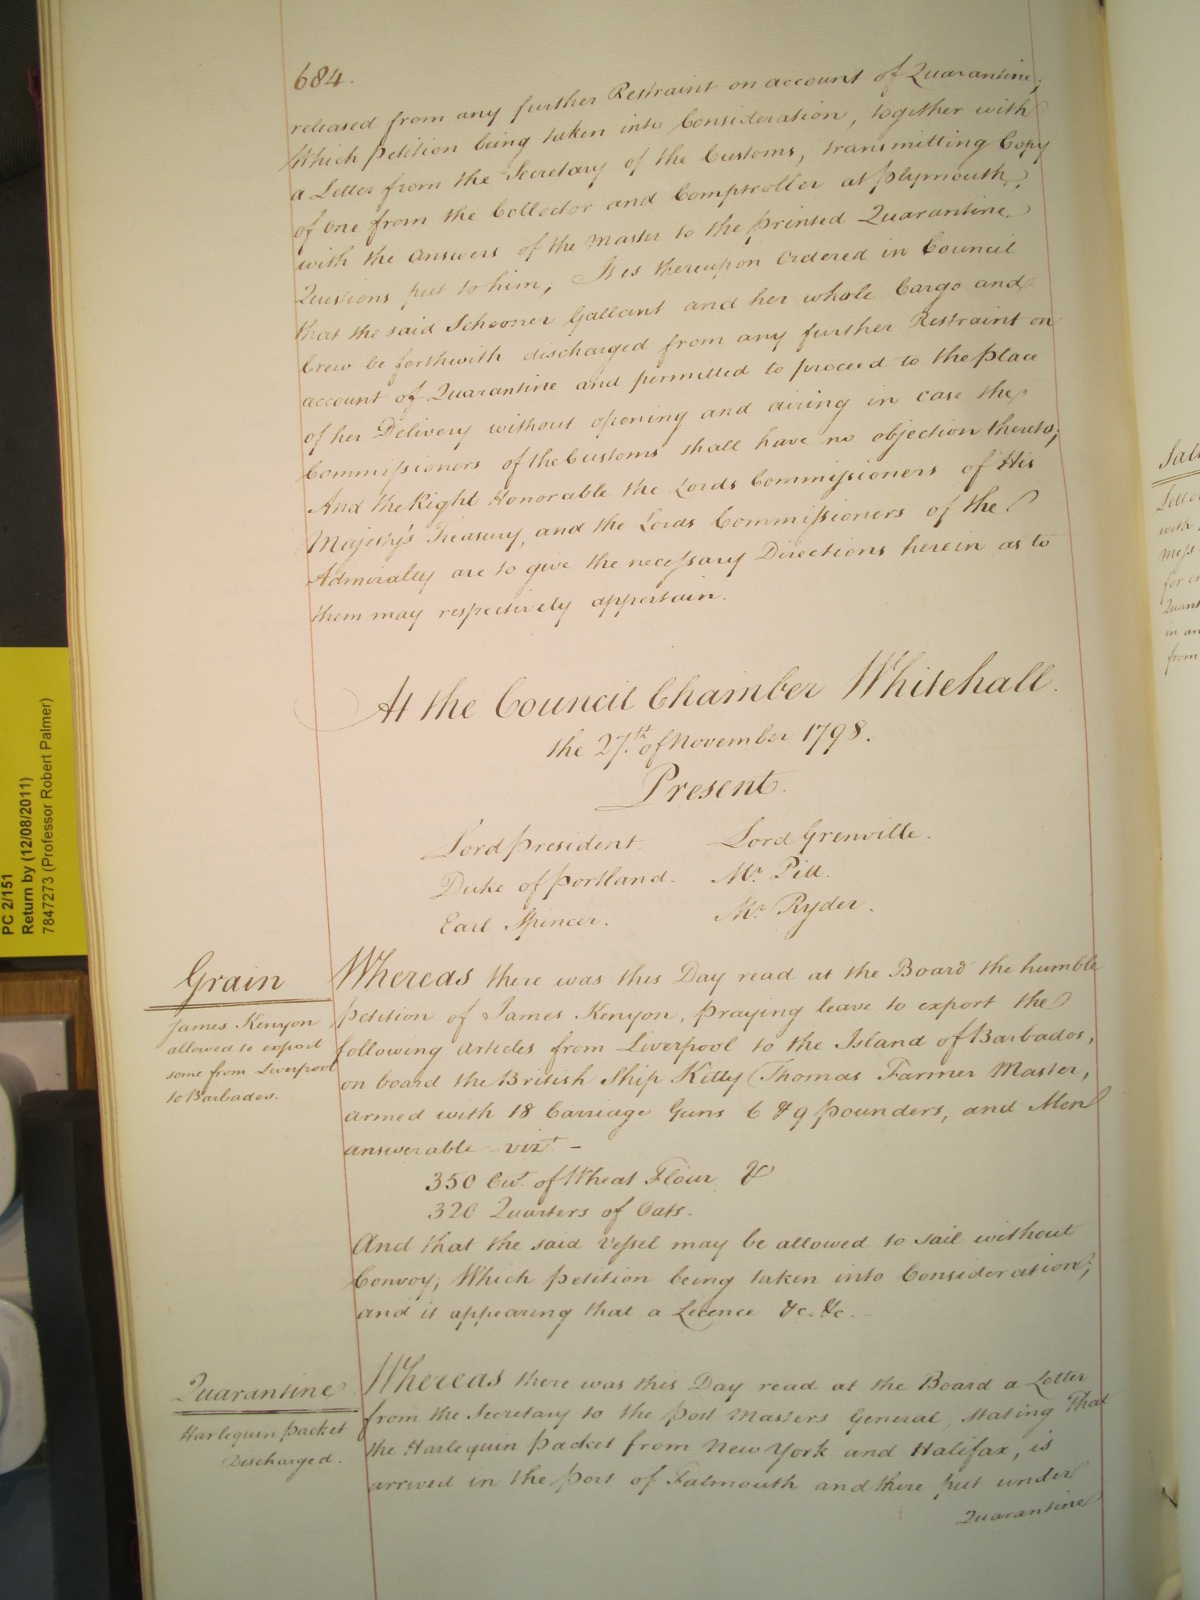 684.
released from any further Restraint on account of Quarantine;
Which Petition being taken into Consideration, together with
a Letter from the Secretary of the Customs, transmitting Copy
of one from the Collector and Comptroller at Plymouth,
with the Answers of the Master to the printed Quarantine
Questions put to him; It is thereupon Ordered in Council
that the said Schooner Gallant and her whole Cargo and
Crew be forthwith discharged from any further Restraint on
account of Quarantine and permitted to proceed to the place
of her Delivery without opening and airing in case the
Commissioners of the Customs shall have no objection thereto;
And the Right Honorable the Lords Commissioners of His
Majesty's Treasury, and the Lords Commissioners of the
Admiralty are to give the necessary Directions herein as to
them may respectively appertain.
At the Council Chamber Whitehall.
the 27.th of November 1798.
Present.
Lord President. Lord Grenville.
Duke of Portland. Mr. Pitt.
Earl Spencer. Mr. Ryder.
Grain
James Kenyon
allowed to export
some from Liverpool
to Barbados.
Whereas there was this Day read at the Board the humble
Petition of James Kenyon, praying leave to export the
following Articles from Liverpool to the Island of Barbados,
on board the British Ship Kitty (Thomas Farmer Master,
armed with 18 Carriage Guns 6 & 9 pounders, and Men
answerable vizt. -
350 Cwt. of Wheat Flour &
320 Quarters of Oats.
And that the said Vessel may be allowed to sail without
Convoy; Which Petition being taken into Consideration;
and it appearing that a Licence &c. &c. -
Quarantine
Harlequin Packet
Discharged.
Whereas there was this Day read at the Board a Letter
from the Secretary to the Post Masters General, stating That
the Harlequin Packet from New York and Halifax, is
arrived in the Port of Falmouth and there put under
Quarantine
PC 2/151
Return by (12/08/2011)
7847273 (Professor Robert Palmer)
with
Mess
for
in an
from